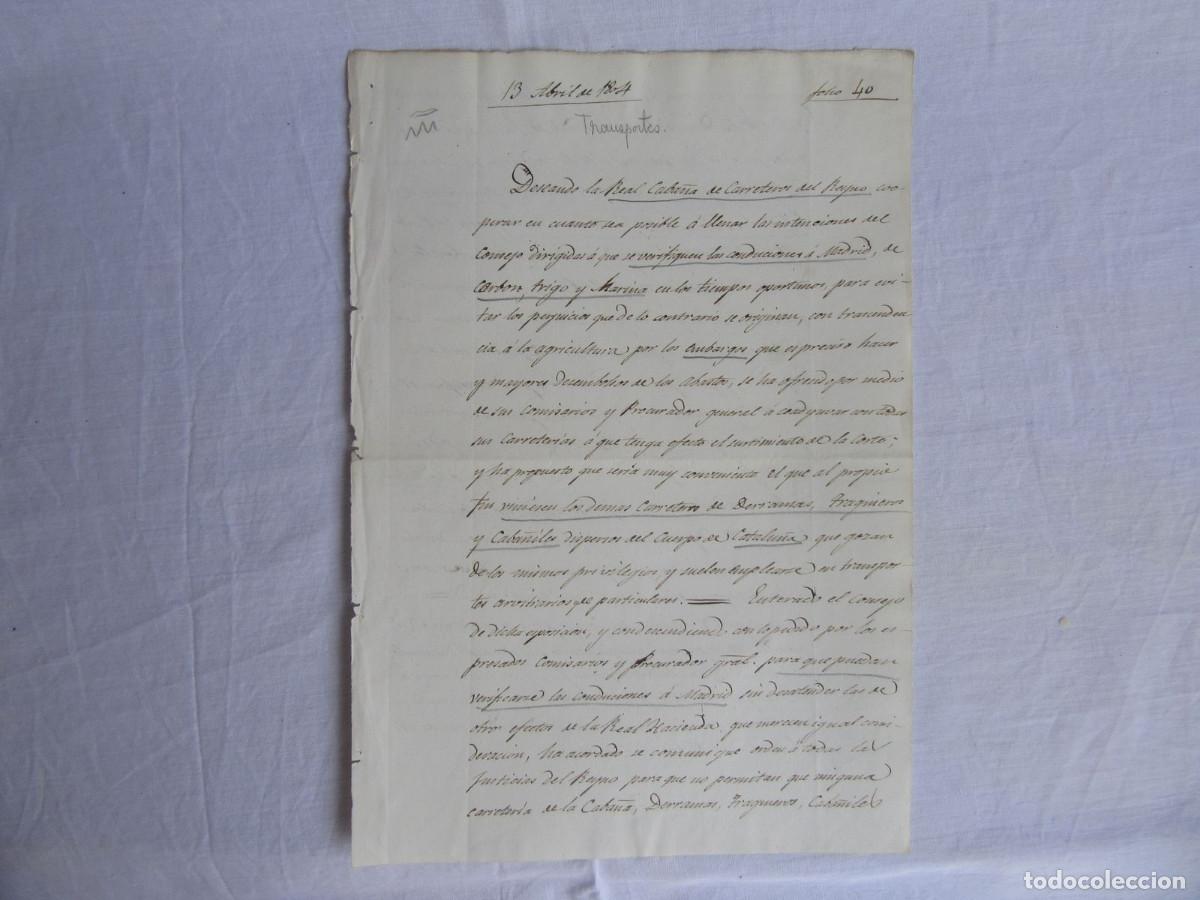 13 Abril de 1804 folio 40
Transportes.
Deseando la Real Cabaña de Carreteros del Reyno coo-
perar en cuanto sea posible á llenar las intenciones del
Consejo dirigidas á que se verifiquen las conduciones á Madrid, de
Carbon, trigo y Marina en los tiempos oportunos, para evi-
tar los perjuicios que de lo contrario se originan, con trascenden-
cia á la agricultura por los embargos que es preciso hacer
y mayores desembolsos de los Abastos, se ha ofrendo por medio
de sus Comisarios y Procurador general á coadyuvar con todas
sus Carreterias á que tenga efecto el surtimiento de la Corte;
y ha propuesto que seria muy conveniente el que al propio
fin viniesen los demas Carreteros de Derramas, Tragineros
y Cabañiles dispersos del Cuerpo de Cataluña que gozan
de los mismos privilejios, y suelen emplearse en transpor-
tes arvitrarios y de particulares. Enterado el Consejo
de dicha exposicion, y condescendiendo con lo pedido por los es-
presados Comisarios y Procurador gral. para que puedan
verificarse las conduciones á Madrid sin desatender las de
otros efectos de la Real Hacienda que merecen igual consi-
deracion, ha acordado se comunique orden á todas las
Justicias del Reyno para que no permitan que ninguna
carretería de la Cabaña, Derramas, Tragineros, Cabañiles
todocoleccion